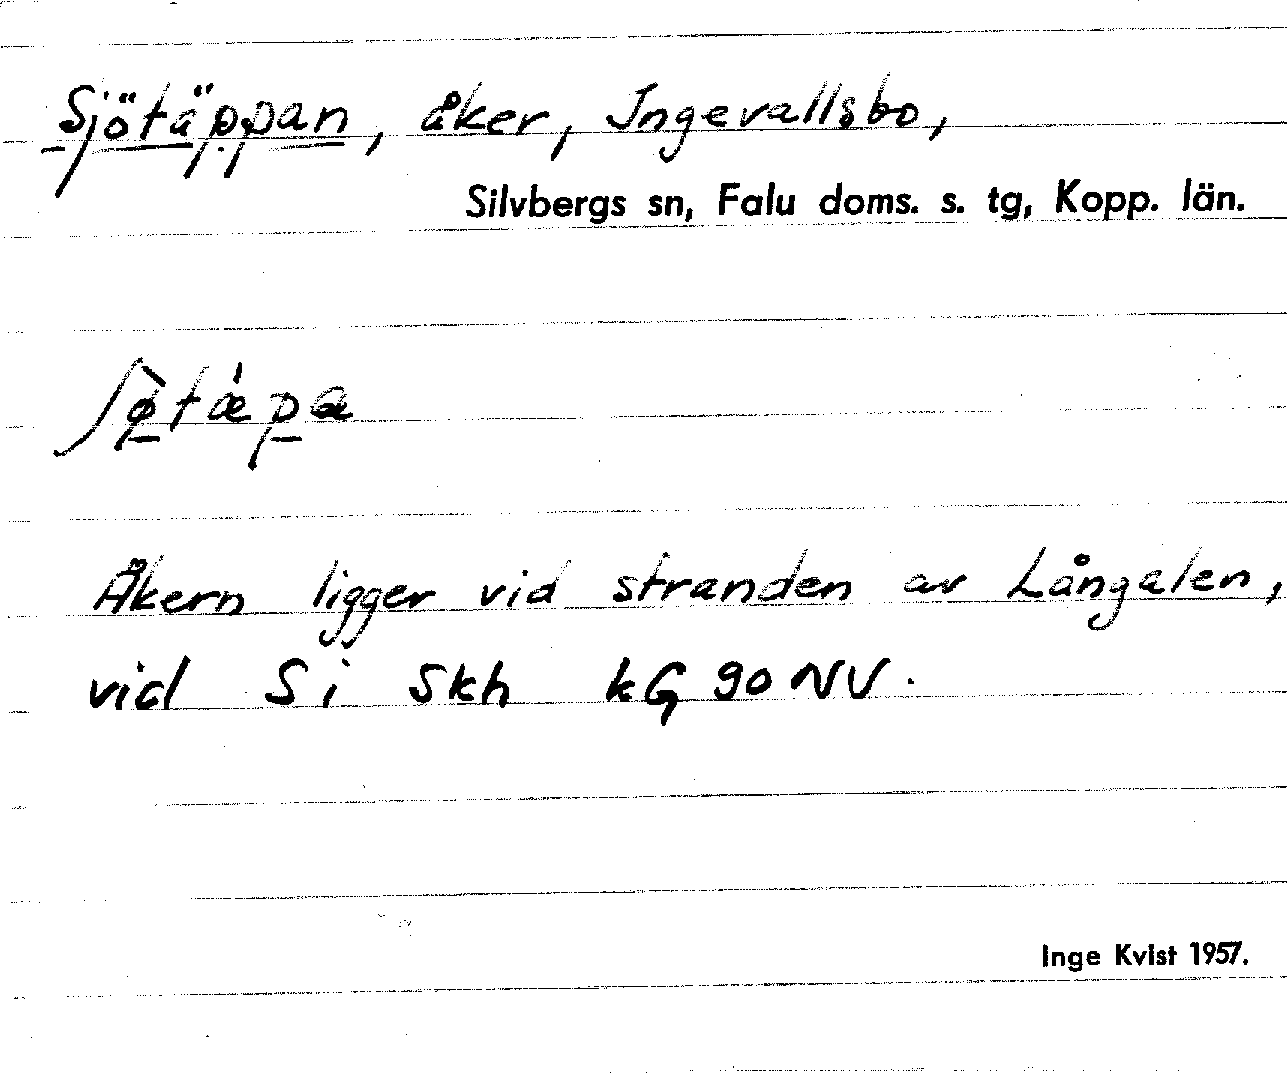 Sjötäppan, åker, Ingevallsbo,
Silvbergs sn, Falu doms. s. tg, Kopp. län.
ʃø̠̀tæ̍p̠a
Åkern ligger vid stranden av Långalen,
vid Si Skh kG 90 NV.
Inge Kvist 1957.